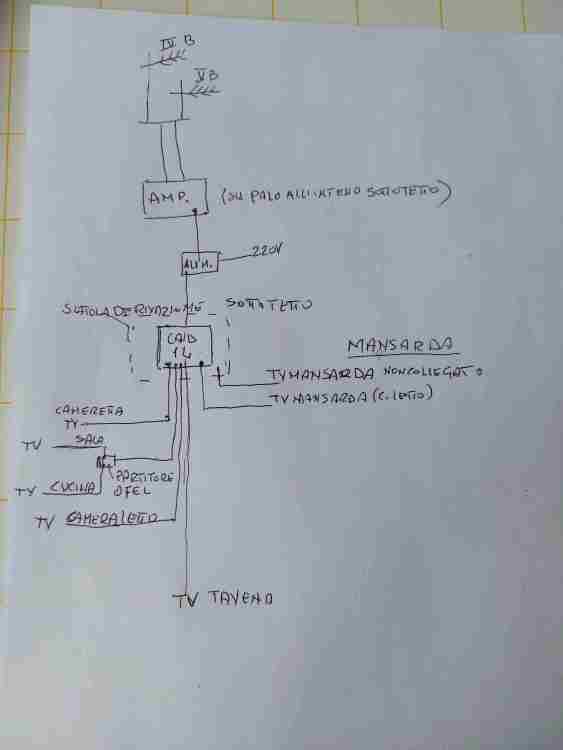 IV B
V B
AMP.
(SU PALO ALL'INTENO SOTTOTETTO)
ALIM.
220V
SCATOLA DERIVAZIONE
SOTTOTETTO
CAD
14
MANSARDA
TV MANSARDA NON COLLEGATO
TV MANSARDA (C. LETTO)
CAMERETTA
TV
TV SALA
PARTITORE
OFEL
TV CUCINA
TV CAMERA LETTO
TV TAVENA